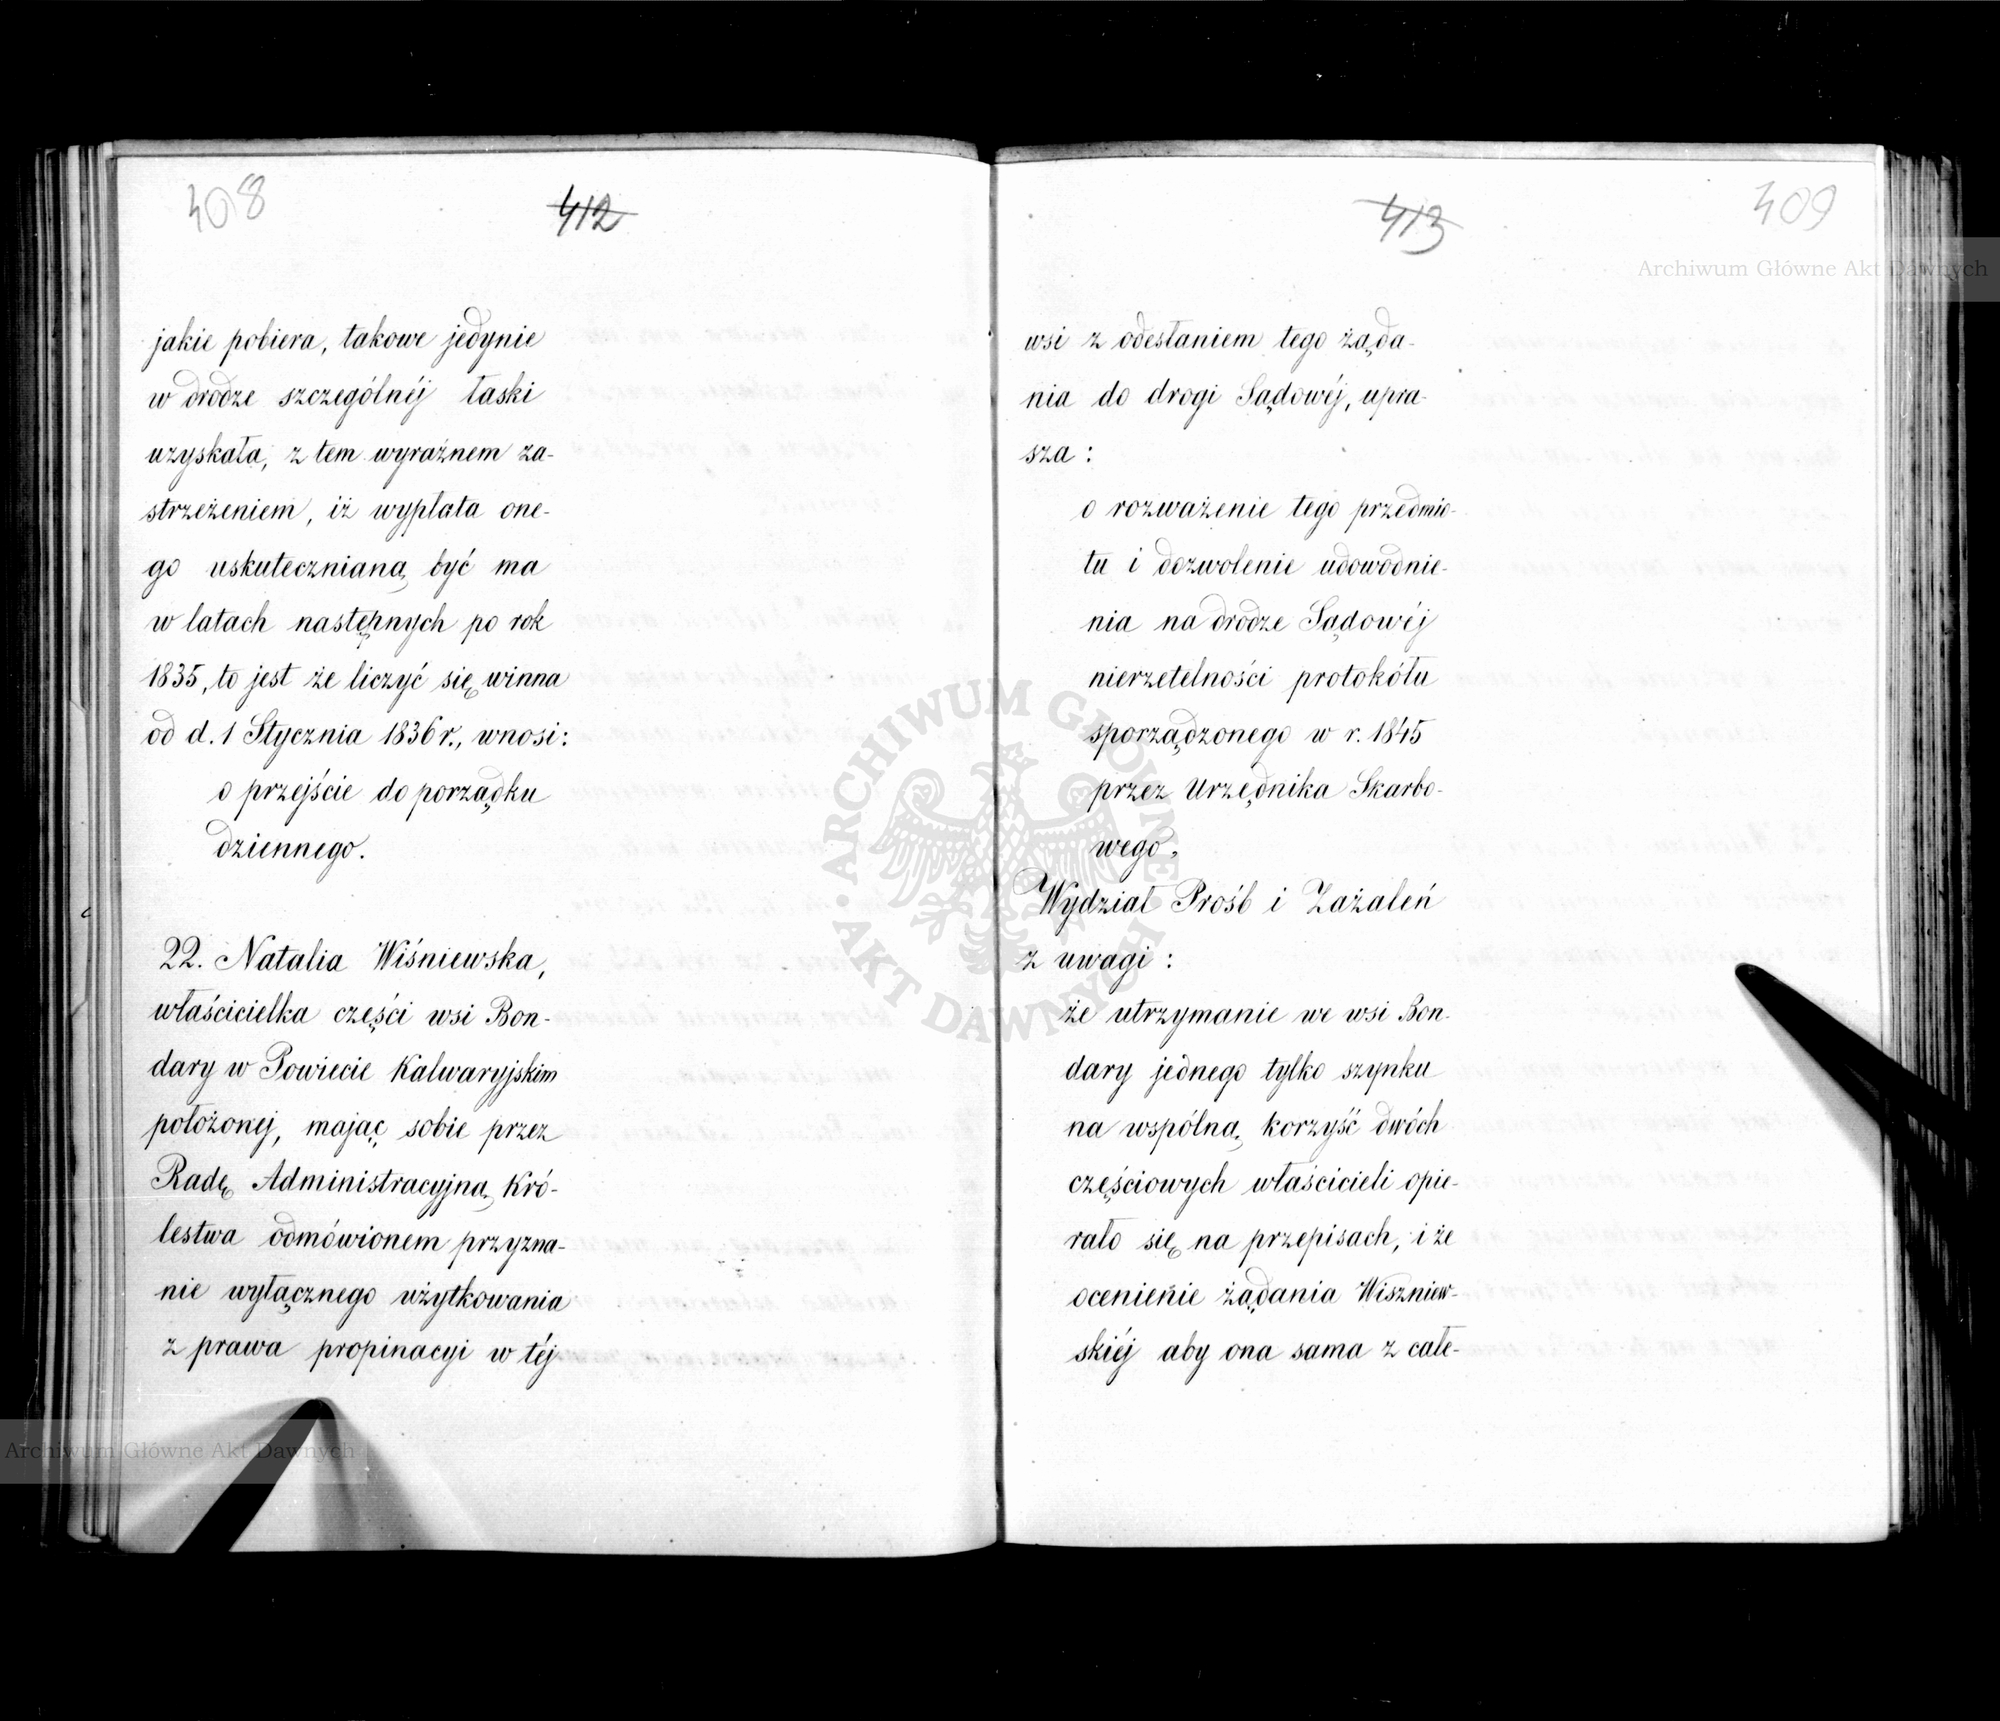 408
412
jakie pobiera, takowe jedynie
w drodze szczególnéj łaski
uzyskała, z tem wyraźnem za-
strzeżeniem, iż wypłata one-
go uskutecznianą być ma
w latach następnych po rok
1835, to jest że liczyć się winna
od d. 1 Stycznia 1836 r., wnosi:
o przejście do porządku
dziennego.
22. Natalia Wiśniewska,
właścicielka części wsi Bon-
dary w Powiecie Kalwaryjskim
położonej, mając sobie przez
Radę Administracyjną Kró-
lestwa odmówionem przyzna-
nie wyłącznego użytkowania
z prawa propinacyi w téj
413
409
wsi z odesłaniem tego żąda-
nia do drogi Sądowéj, upra-
sza:
o rozważenie tego przedmio-
tu i dozwolenie udowodnie-
nia na drodze Sądowéj
nierzetelności protokółu
sporządzonego w r. 1845
przez Urzędnika Skarbo-
wego,
Wydział Prośb i Zażaleń
z uwagi:
że utrzymanie we wsi Bon-
dary jednego tylko szynku
na wspólną korzyść dwóch
częściowych właścicieli opie-
rało się na przepisach, i że
ocenienie żądania Wiszniew-
skiéj aby ona sama z całe-
Archiwum Główne Akt Dawnych
Archiwum Główne Akt Dawnych
ARCHIWUM GŁÓWNE AKT DAWNYCH